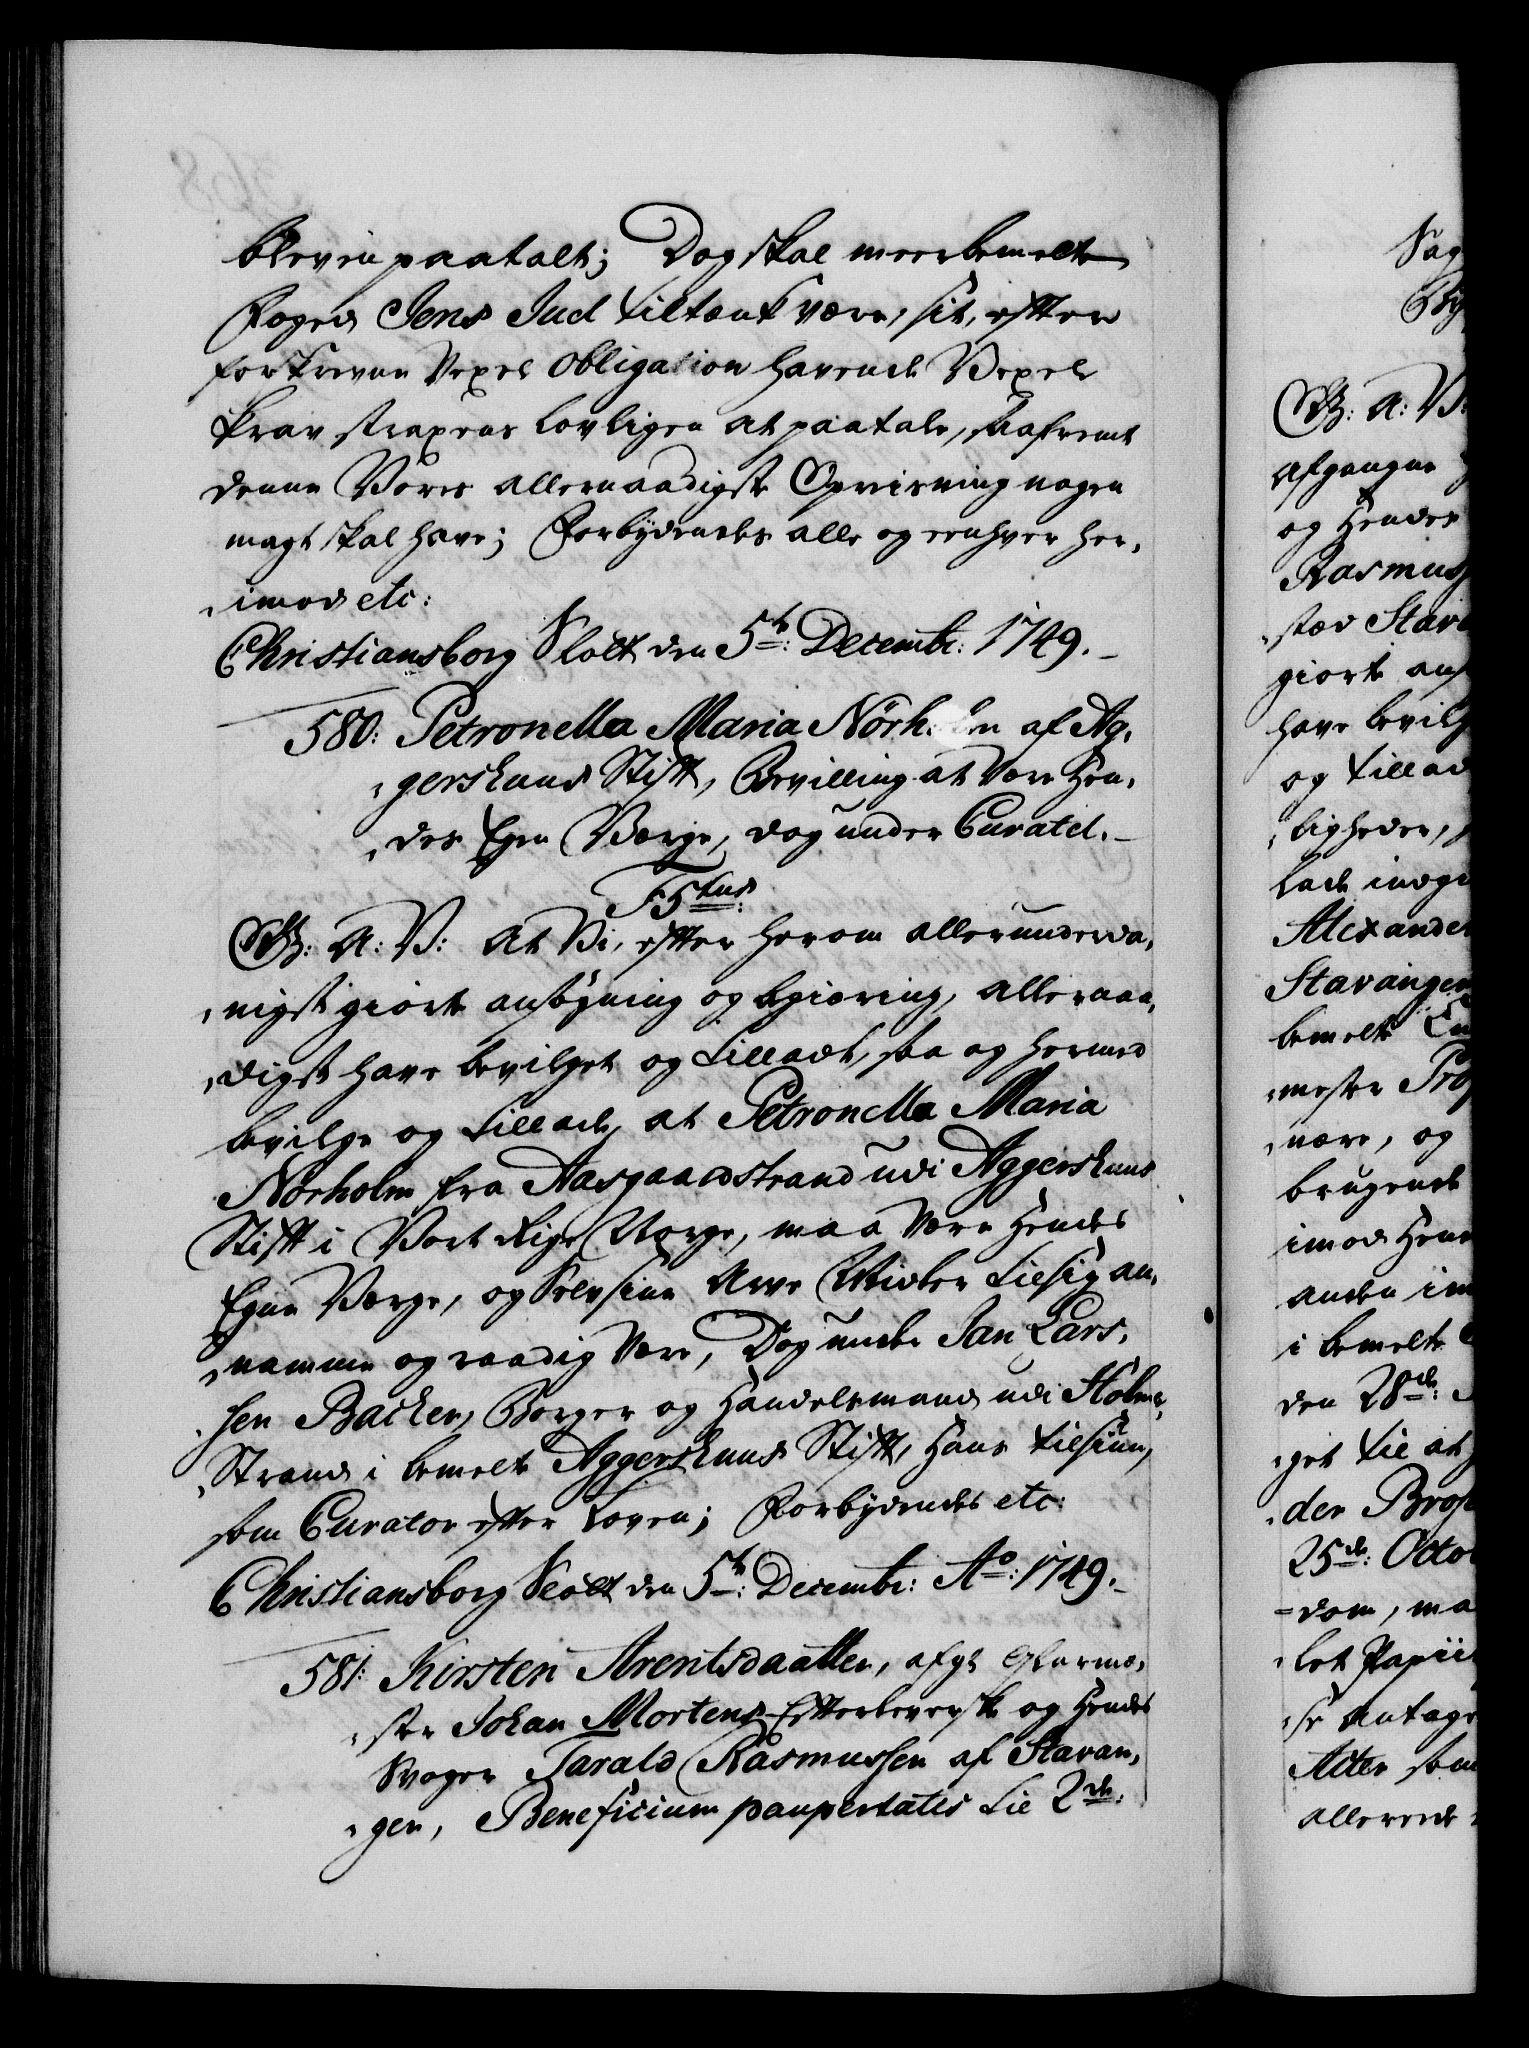 bleven paatalt; Dog skal meerbemelte
Foged Jens Juel tiltænkt være, sit, efter
forskrevne Vexel Obligation havende Vexel
krav straxens lovligen at paatale, saafremt
denne Vores allernaadigste Opreisning nogen
magt skal have; Forbydendes alle og eenhver her,
,imod etc:
Christiansborg Slott den 5te: Decembr: 1749.
580: Petronella Maria Nørholm af Ag,
,gershuus Stift, Bevilling at være Hen,
,des Egen Værge, dog under Curatel.
F5tus:
G: A: V: At Vi, efter herom allerunderda,
,nigst giorte ansøgning og begiæring, allernaa,
,digst have bevilget og tilladt, saa og hermed
bevilge og tillade, at Petronella Maria
Nørholm fra Aasgaardstrand udi Aggershuus
Stift i Vort Rige Norge, maa være Hendes
Egen Værge, og Selv sine Arve Midler til sig an,
,namme og raadig være, Dog under Jan Lars,
,sen Backer, Borger og Handelsmand udi Holme,
,Strand i bemelte Aggershuus Stift, Hans tilsiun,
som Curator efter Loven; Forbydendes etc:
Christiansborg Slott den 5te: Decembr: Ao: 1749.
581: Kirsten Arentsdaatter, afgl Glarme,
,ster Johan Mortens Efterleverske og Hendes
Svoger Tarald Rasmussen af Stavan,
,ger, Beneficium paupertatis til 2de:
Sag
G: A: V:
afgangne
og Hendes
Rasmus
,stæd Stava
giorte ans
have bevilg
og tillad
,ligheder,
lade indgi
Alexander
Stavanger
bemelte
,mester Pro
,nære, og
brugende
imod Hen
anden im
i bemelte
den 28de:
,get til at
,der Bros
25de: Octo
=dom, ma
,let Papiir
,se antage
Acter som
allerede